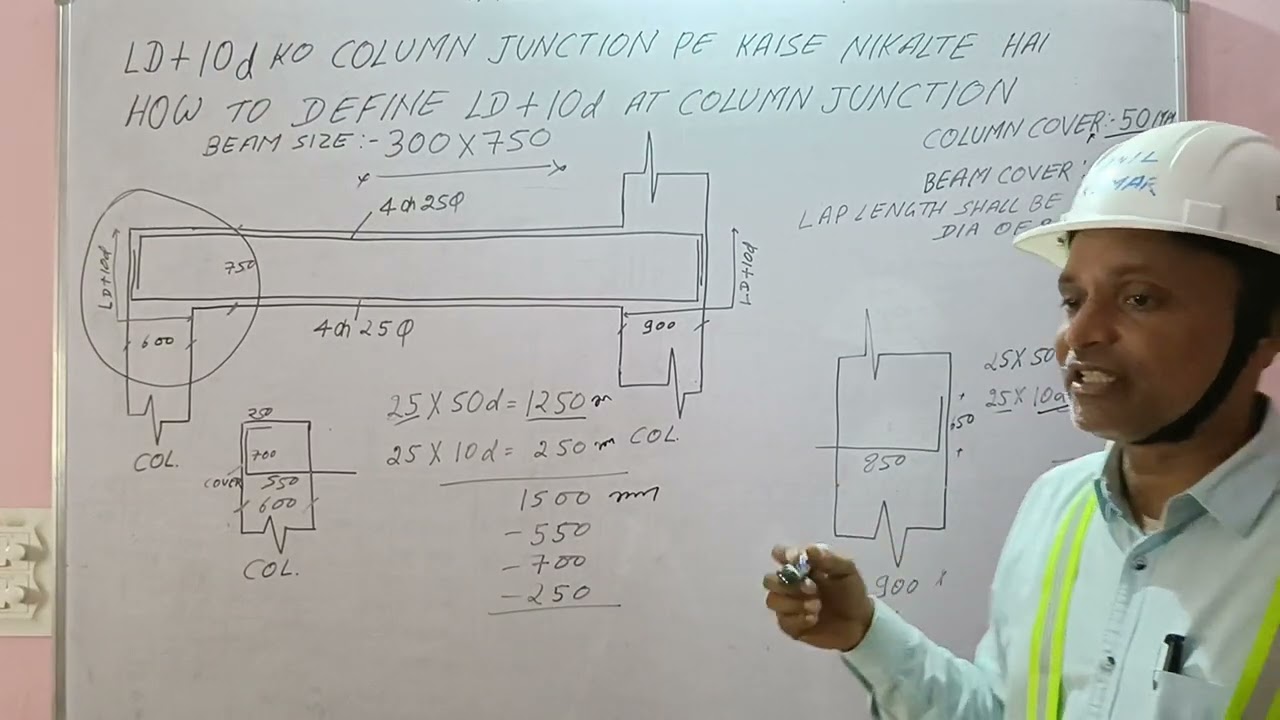 LD+10d KO COLUMN JUNCTION PE KAISE NIKALTE HAI
HOW TO DEFINE LD+10d AT COLUMN JUNCTION
BEAM SIZE:- 300X750
COLUMN COVER:- 50
BEAM COVER
LAP LENGTH SHALL BE
DIA OF
4 25Φ
LD+10d
750
LD+10d
600
4 25Φ
900
COL.
COL.
250
700
COVER 550
600
COL.
25 X 50d = 1250 m
25 X 10d = 250 m
1500 mm
-550
-700
-250
25X50
25X10d
650
850
900